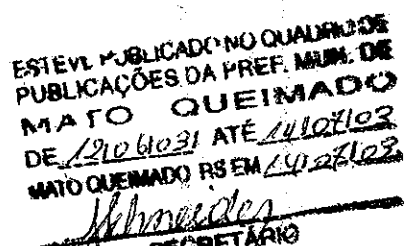 ESTEVE PUBLICADO NO QUADRO DE
PUBLICAÇÕES DA PREF. MUN. DE
MATO QUEIMADO
DE 12/06/03 ATÉ 14/07/03
MATO QUEIMADO RS EM 14/07/03
SECRETÁRIO